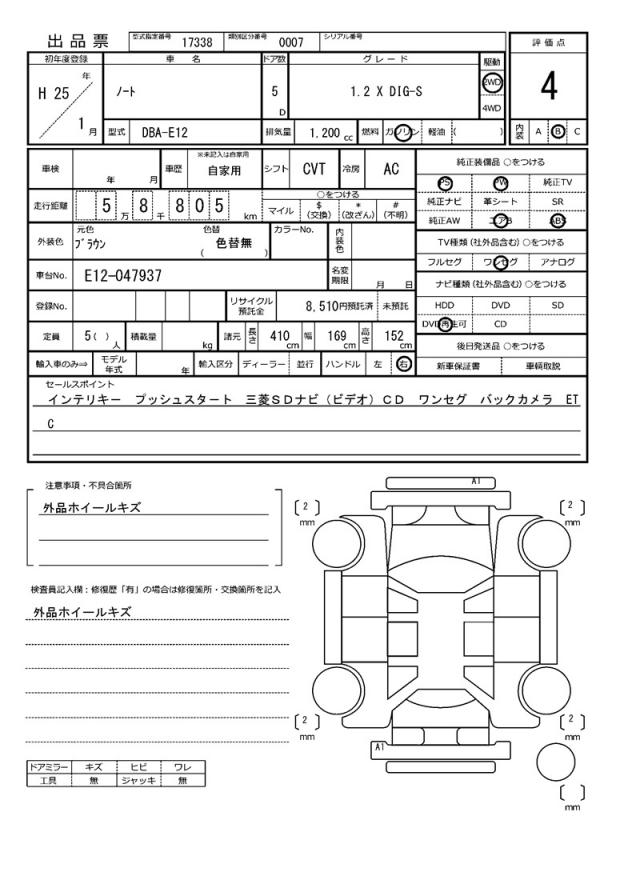 出品票
型式指定番号 17338 類別区分番号 0007 シリアル番号
評価点
4
初年度登録 車名 ドア数 グレード 駆動
H 25 年 1 月
ノート
5 D
1.2 X DIG-S
2WD
4WD
型式 DBA-E12 排気量 1.200 cc 燃料 ガソリン 軽油 ( )
内装 A B C
車検 年 月 車歴 ※未記入は自家用 自家用 シフト CVT 冷房 AC
純正装備品 ○をつける
PS PW 純正TV
純正ナビ 革シート SR
純正AW エアB ABS
走行距離 5 万 8 千 8 0 5 km
○をつける
マイル $(交換) *(改ざん) #(不明)
外装色 元色 ブラウン 色替 ( 色替無 ) カラーNo. 内装色
TV種類(社外品含む)○をつける
フルセグ ワンセグ アナログ
車台No. E12-047937 名変期限 月 日
ナビ種類(社外品含む)○をつける
HDD DVD SD
DVD再生可 CD
登録No. リサイクル預託金 8,510円預託済 未預託
定員 5( )人 積載量 kg 諸元 長さ 410 cm 幅 169 cm 高さ 152 cm
後日発送品 ○をつける
新車保証書 車輌取説
輸入車のみ⇒ モデル年式 年 輸入区分 ディーラー 並行 ハンドル 左 右
セールスポイント
インテリキー プッシュスタート 三菱SDナビ(ビデオ)CD ワンセグ バックカメラ ET
C
注意事項・不具合箇所
外品ホイールキズ
検査員記入欄:修復歴「有」の場合は修復箇所・交換箇所を記入
外品ホイールキズ
A1
[ 2 ] mm
[ 2 ] mm
[ 2 ] mm
[ 2 ] mm
A1
[ ] mm
ドアミラー キズ ヒビ ワレ
工具 無 ジャッキ 無